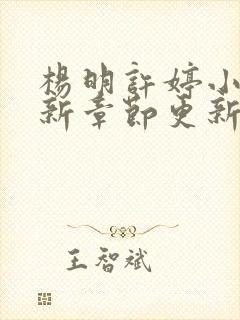 楊明許婷小
新章節更新
王智斌